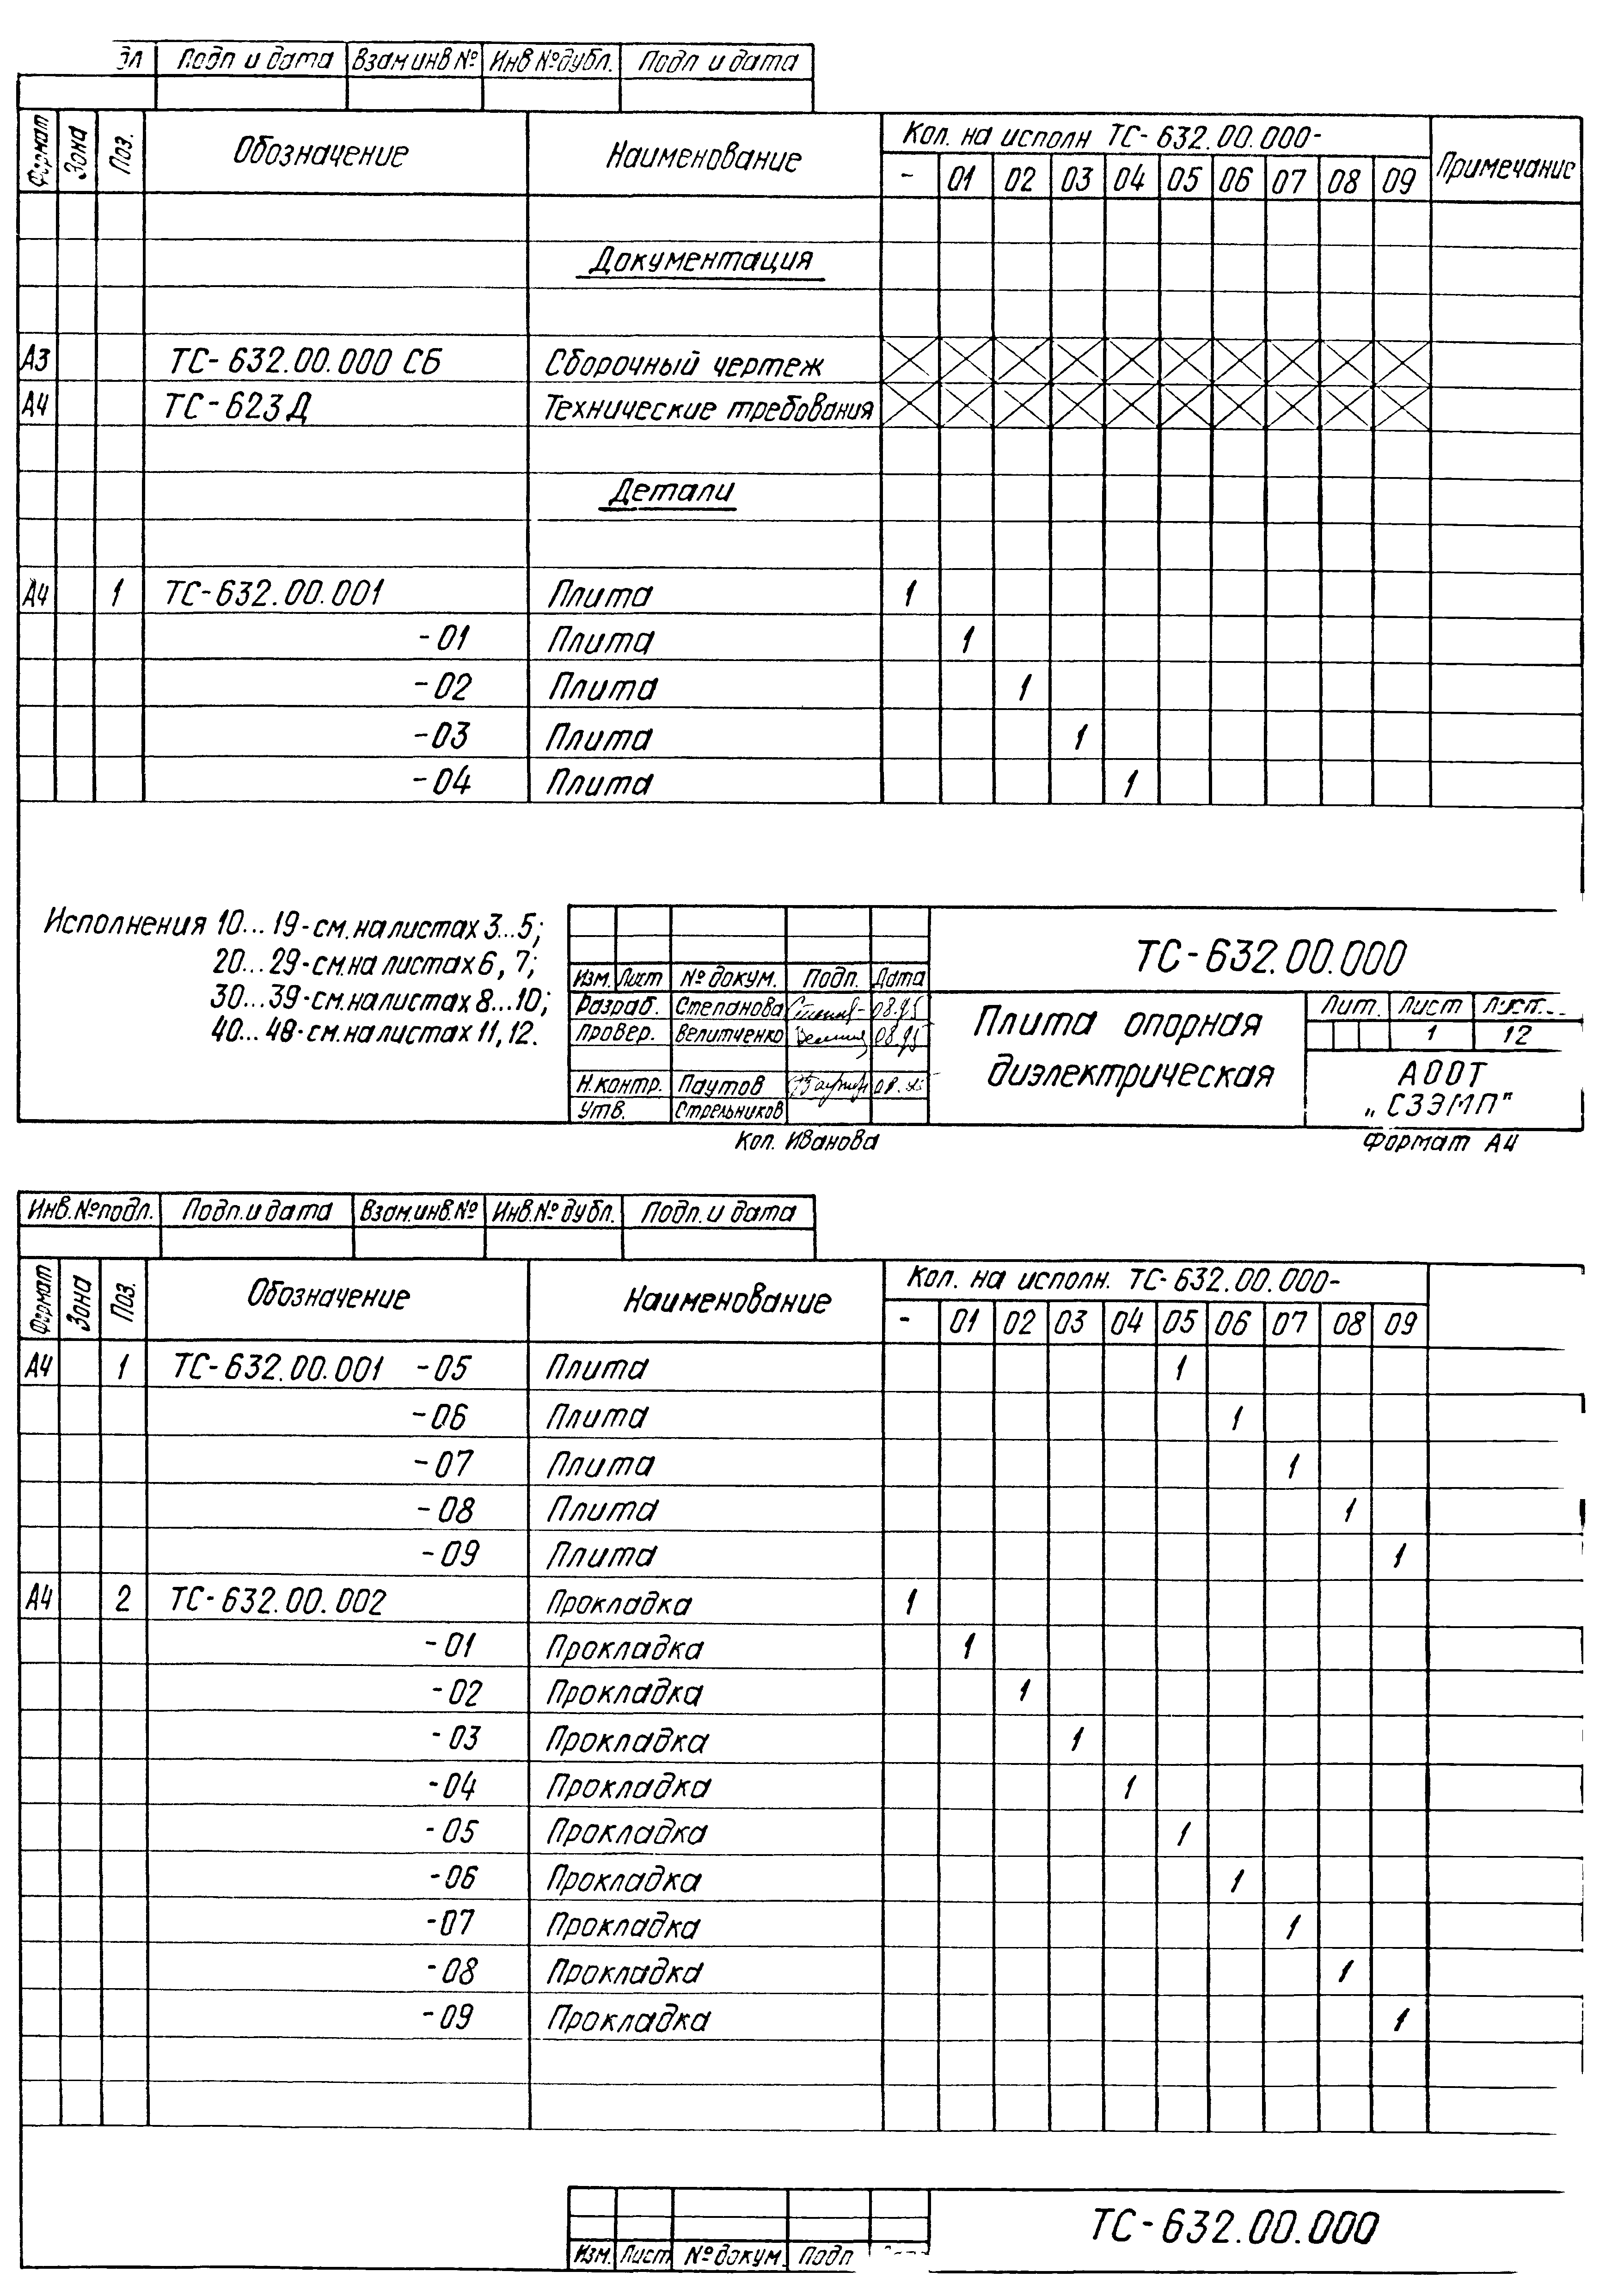 Подп и дата Взам инв № Инв № дубл. Подп и дата
Формат Зона Поз. Обозначение Наименование Кол. на исполн ТС-632.00.000- Примечание
- 01 02 03 04 05 06 07 08 09
Документация
А3 ТС-632.00.000 СБ Сборочный чертеж
А4 ТС-623Д Технические требования
Детали
А4 1 ТС-632.00.001 Плита 1
-01 Плита 1
-02 Плита 1
-03 Плита 1
-04 Плита 1
Исполнения 10...19-см. на листах 3...5;
20...29-см. на листах 6, 7;
30...39-см. на листах 8...10;
40...48-см. на листах 11, 12.
ТС-632.00.000
Изм. Лист № докум. Подп. Дата
Разраб. Степанова 08.95
Провер. Велитченко 08.95
Н.контр. Паутов
Утв. Стрельников
Плита опорная
диэлектрическая
Лит. Лист
1 12
АООТ
„СЗЭМП"
Кол. Иванова Формат А4
Инв. № подл. Подп. и дата Взам. инв. № Инв. № дубл. Подп. и дата
Формат Зона Поз. Обозначение Наименование Кол. на исполн. ТС-632.00.000-
- 01 02 03 04 05 06 07 08 09
А4 1 ТС-632.00.001 -05 Плита 1
-06 Плита 1
-07 Плита 1
-08 Плита 1
-09 Плита 1
А4 2 ТС-632.00.002 Прокладка 1
-01 Прокладка 1
-02 Прокладка 1
-03 Прокладка 1
-04 Прокладка 1
-05 Прокладка 1
-06 Прокладка 1
-07 Прокладка 1
-08 Прокладка 1
-09 Прокладка 1
ТС-632.00.000
Изм. Лист № докум. Подп